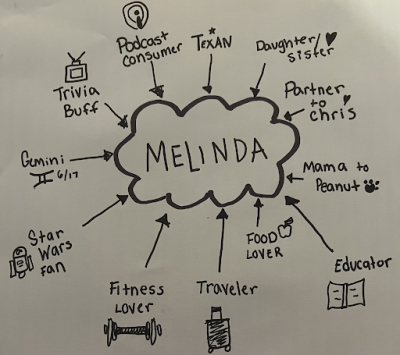 Podcast
Consumer
TEXAN
Daughter/
sister
Trivia
Buff
Partner
to
chris
MELINDA
Gemini
6/17
Mama to
Peanut
Star
Wars
Fan
FOOD
LOVER
Educator
Fitness
Lover
Traveler